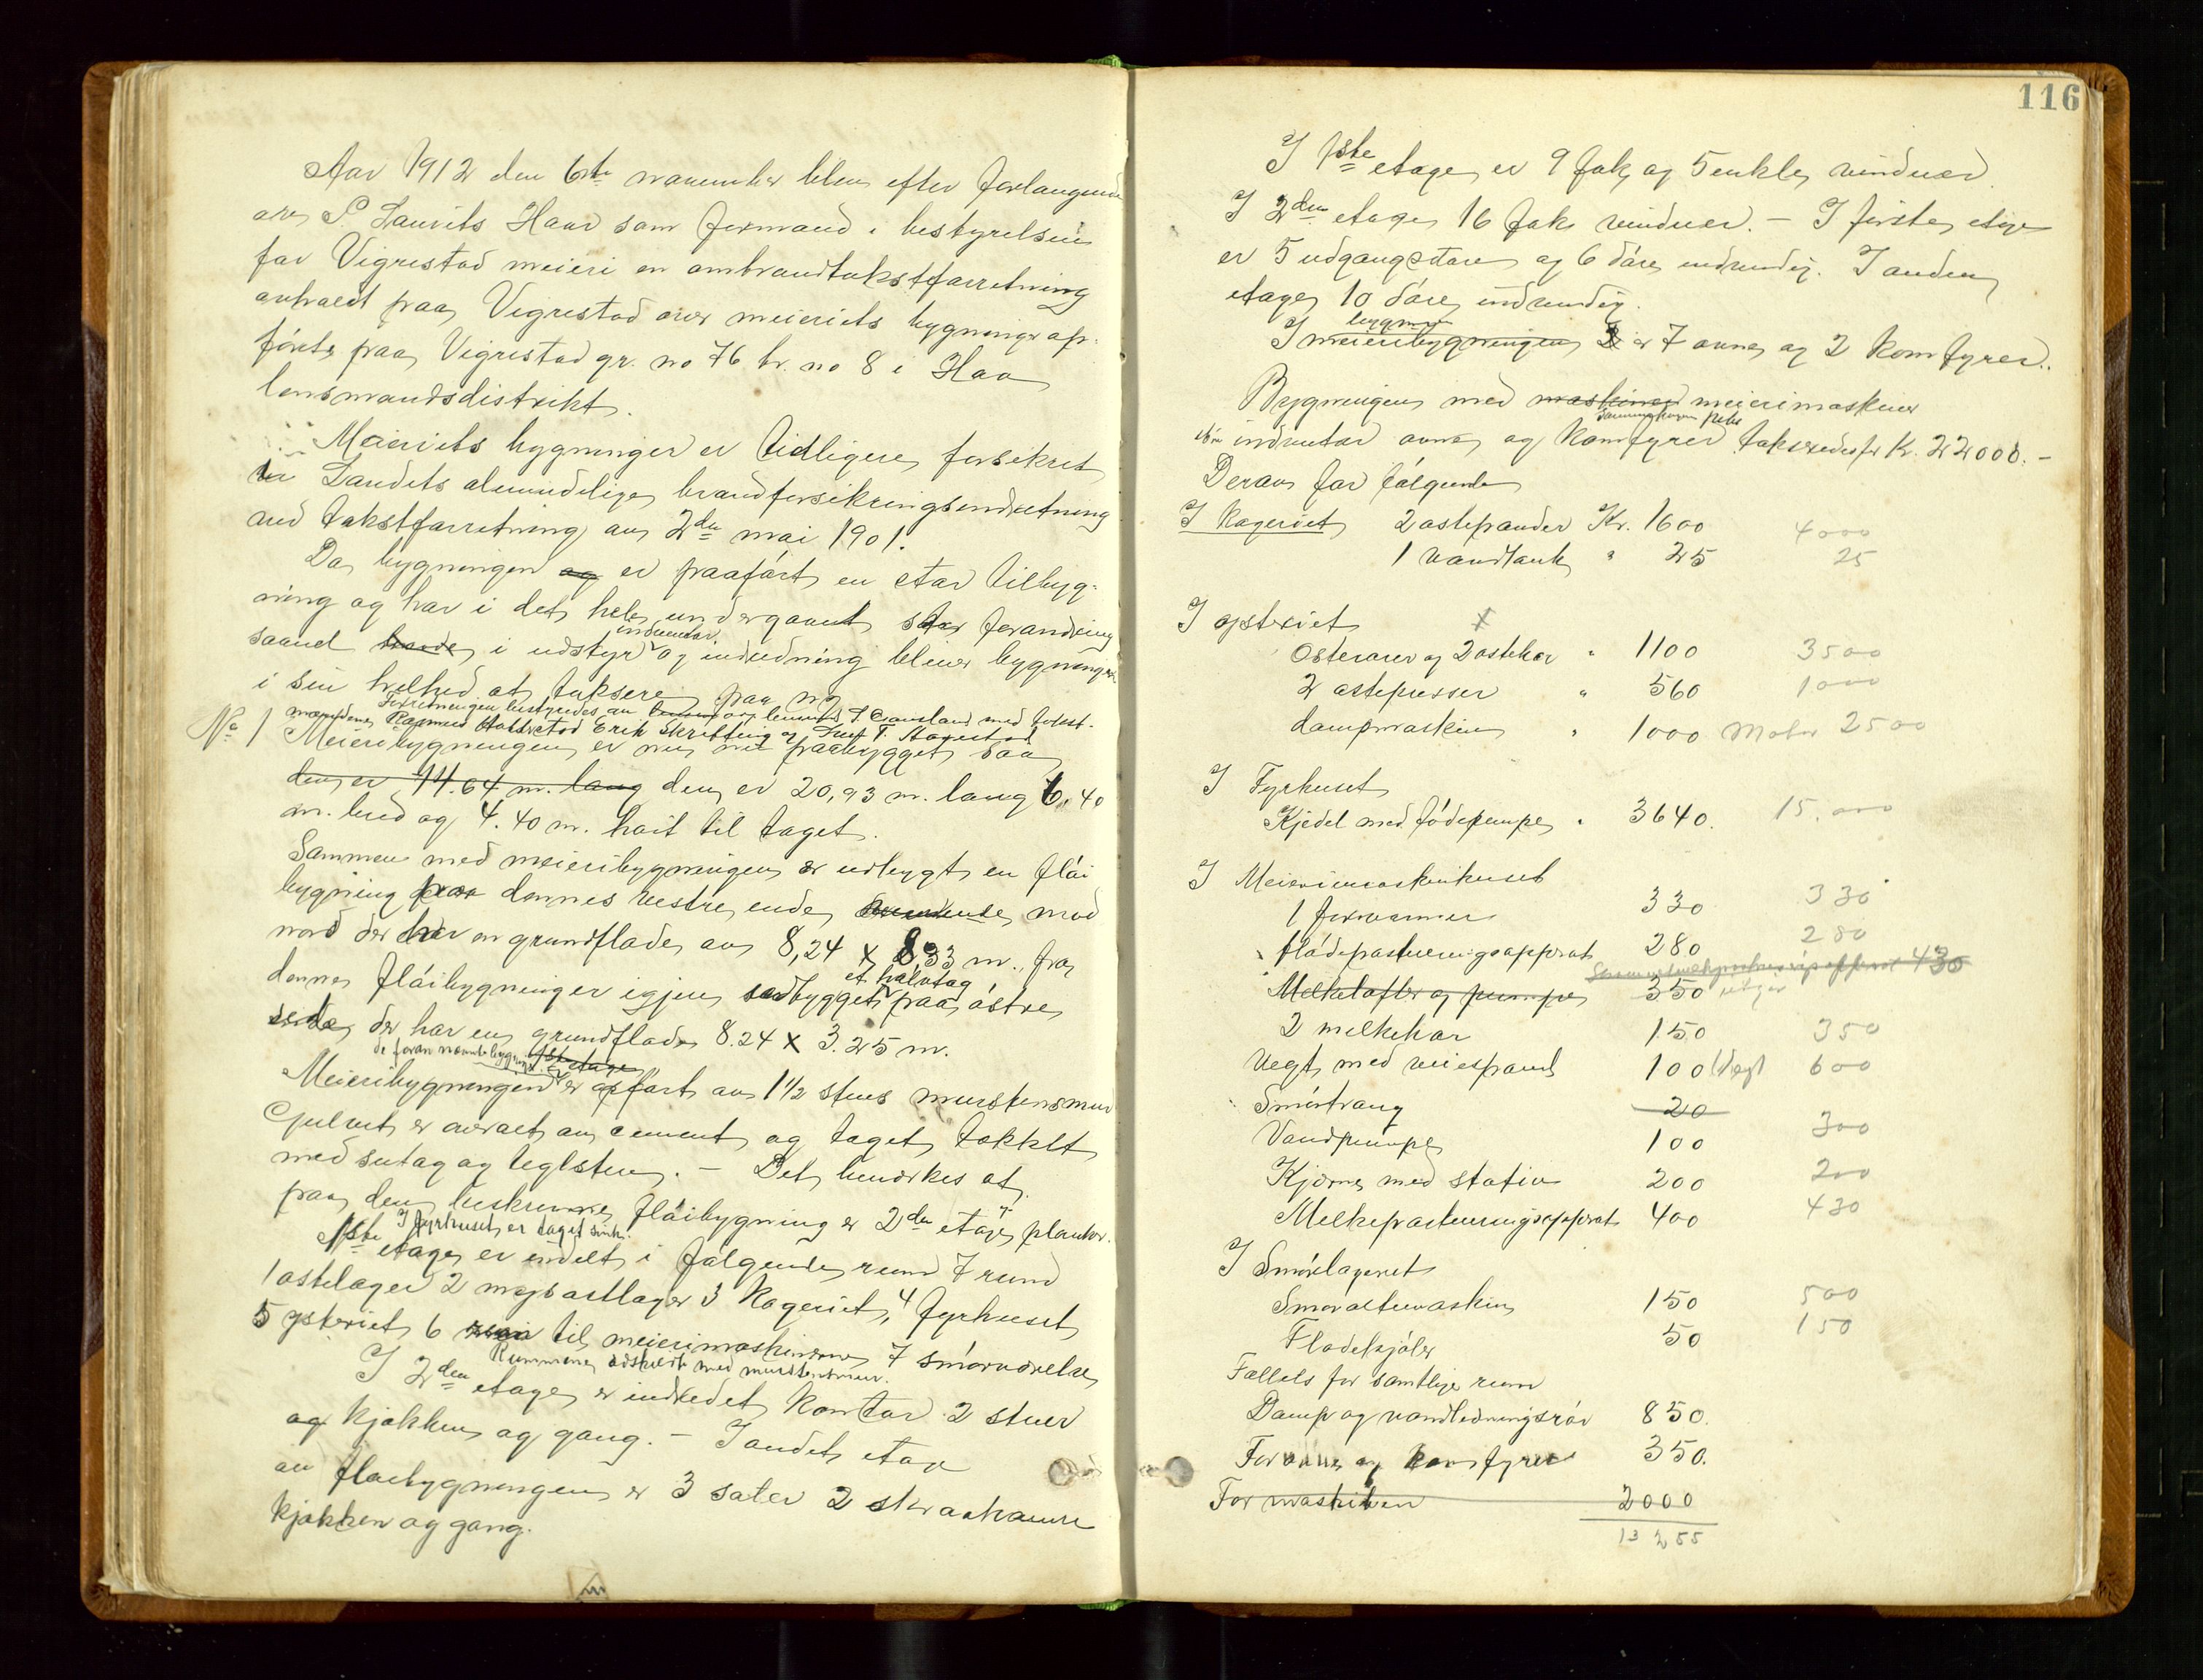 Aar 1912 den 6te november blev efter forlangende
av P. Laurits Haar som formand i bestyrelsen
for Vigrestad meieri en ombrandtakstforretning
avholdt paa Vigrestad over meieriets bygninger op-
førte paa Vigrestad gr. no 76 br. no 8 i Haa
lensmandsdistrikt.
Meieriets bygninger er tidligere forsikret
i Landets almindelige brandforsikringsindretning
ved takstforretning av 2den mai 1901.
Da bygningen og er paaført en stor tilbyg-
ning og har i det hele undergaaet stor forandring
saavel i udstyr inventar og indredning bliver bygningen
i sin helhed at taksere paa ny
Forretningen bestyredes av lensmd. med takst-
mændene Rasmus Erik Skretting og T.
No 1 Meieribygningen er nu paabygget saa
den er 14.64 m. lang den er 20,93 m. lang 6,40
m. bred og 4.40 m. høit til taget.
Sammen med meieribygningen er udbygt en fløi
bygning paa dennes vestre ende mod
nord der har en grundflade av 8,24 x 8,33 m., fra
denne fløibygninger igjen udbygget et halvtag paa østre
side der har en grundflade 8.24 x 3.25 m.
de foran nævnte bygninger 1ste etage
Meieribygningen er opført av 1 1/2 stens murstensmur
Gulvet er overalt av cement og taget tækket
med sutag og teglsten. - Det bemærkes at
paa den beskrevne fløibygning er 2den etage planker.
I fyrhuset er taget sink.
1ste etage er indelt i følgende rum 7 rum
1 ostelager 2 mysostlager 3 kogeriet, 4 fyrhuset
5 ysteriet 6 rum til meierimaskinerne 7 smørværelse
Rummene adskildt med murstensmur.
I 2den etage er indredet kontor 2 stuer
og kjøkken og gang. - I andet etage
av fløibygningen er 3 saler 2 skraakamre
kjøkken og gang.
116
I 1ste etage er 9 fak og 5 enkle vinduer.
I 2den etage 16 fak vinduer. - I første etage
er 5 udgangsdøre og 6 døre indvendig. I anden
etage 10 døre indvendig.
bygningen
I meieribygningen er 7 ovne og 2 komfyrer.
Bygningen med maskiner meierimaskiner
inventar ovne og komfyrer takseredes for Kr. 22000.-
Derav for følgende
I kogeriet 2 ostepander Kr. 1600 4000
1 vandtank " 25 25
I ysteriet
Ostevarer og 2 ostekar " 1100 3500
2 ostepresser " 560 1000
dampmaskin " 1000 Motor 2500
I Fyrhuset
Kjedel med fødepumpe " 3640. 15.000
I Meierimaskinhuset
1 forvarmer 330 330
flødepasteuringsapparat 280 280
430
Melkeløfter og pumpe 350 utgår
2 melkekar 150 350
Vegt med veiespand 100 Vegt 600
Smørtraug 20
Vandpumpe 100 300
Kjærne med stativ 200 200
Melkepasteuringsapparat 400 430
I Smørlageret
Smøreltemaskin 150 500
Flødekjøler 50 150
Fælles for samtlige rum
Damp og vandledningsrør 850.
For ovne og komfyrer 350.
For maskiken 2000
13 255